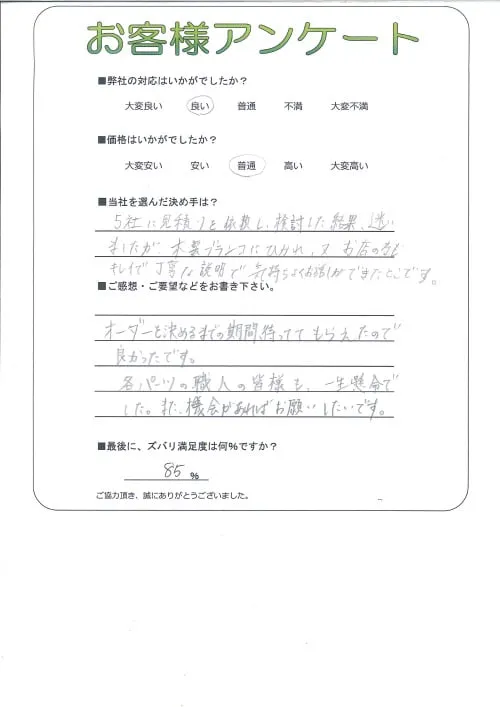 お客様アンケート
■弊社の対応はいかがでしたか?
大変良い 良い 普通 不満 大変不満
■価格はいかがでしたか?
大変安い 安い 普通 高い 大変高い
■当社を選んだ決め手は?
5社に見積りを依頼し、検討した結果、迷い
ましたが 木製ブランコにひかれ、又 お店の方が
キレイで丁寧な説明で 気持ちよくお話しができたとこです。
■ご感想・ご要望などをお書き下さい。
オーダーを決めるまでの期間、待ってて もらえたので
良かったです。
各パーツの職人の皆様も、一生懸命で
した。また、機会があればお願いしたいです。
■最後に、ズバリ満足度は何%ですか?
85 %
ご協力頂き、誠にありがとうございました。